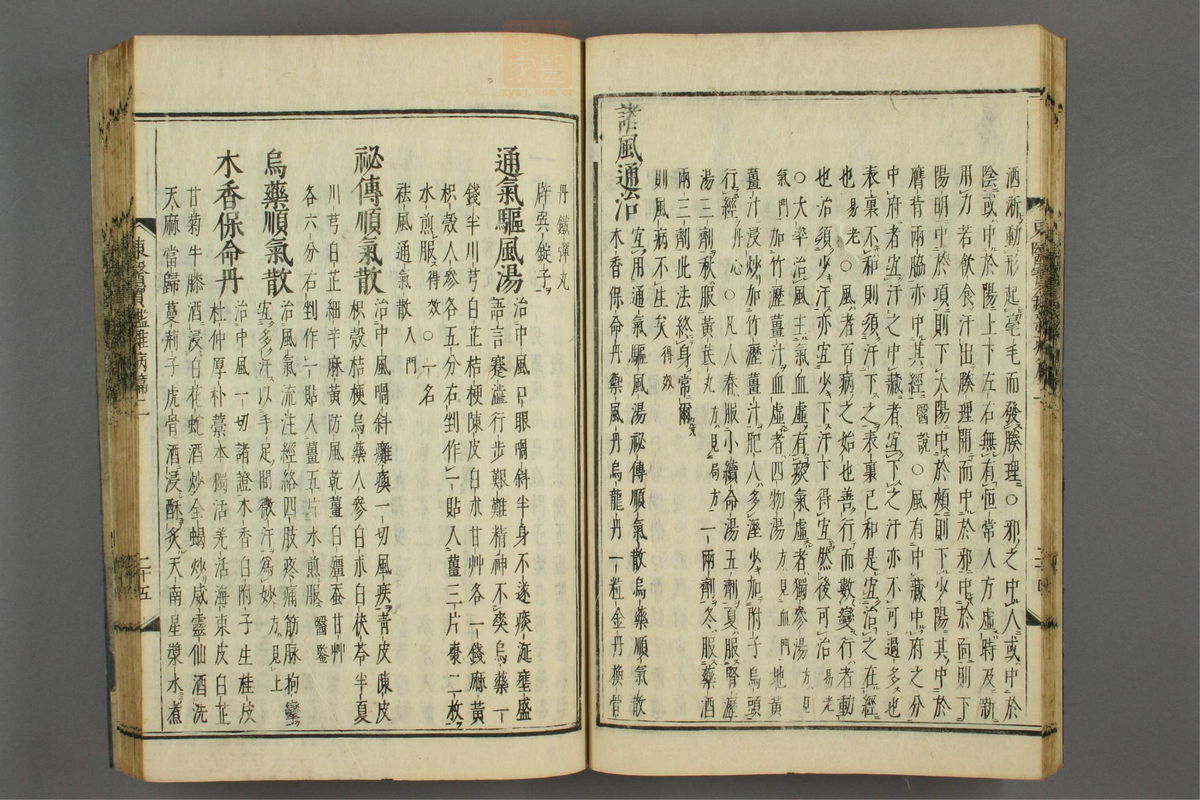 洒淅動形起毫毛而發腠理○邪之中人或中於
陰或中於陽上下左右無有恒常人方虛時及新
用力若飮食汗出腠理開而中於邪中於面則下
陽明中於項則下太陽中於頰則下少陽其中於
膺背兩脇亦中其經醫說○風有中藏中府之分
中府者宜汗之中藏者宜下之汗亦不可過多也
表裏不和則須汗下之表裏已和是宜治之在經
也易老○風者百病之始也善行而數變行者動
也治須少汗亦宜少下汗下得宜然後可治易老
○大率治風主氣血虛有痰氣虛者獨參湯方見
氣門加竹瀝薑汁血虛者四物湯方見血門地黃
薑汁浸炒加竹瀝薑汁肥人多濕少加附子烏頭
行經丹心○凡人春服小續命湯五劑夏服腎瀝
湯三劑秋服黃芪丸方見局方一兩劑冬服藥酒
兩三劑此法終身常爾
則風病不生矣得效
諸風通治
宜用通氣驅風湯祕傳順氣散烏藥順氣散
木香保命丹藥風丹烏龍丹一粒金丹換骨
東醫寶鑑雜病篇二
二十四
丹鐵彈丸
捽英錠子
通氣驅風湯
治中風口眼喎斜半身不遂痰涎壅盛
語言蹇澁行步艱難精神不爽烏藥一
錢半川芎白芷桔梗陳皮白朮甘艸各一錢麻黃
枳殼人參各五分右剉作一貼入薑三片棗二枚
水煎服得效○一名
祛風通氣散入門
祕傳順氣散
治中風喎斜癱瘓一切風疾靑皮陳皮
枳殼桔梗烏藥人參白朮白茯苓半夏
川芎白芷細辛麻黃防風乾薑白殭蚕甘艸
各六分右剉作一貼入薑五片水煎服醫鑑
烏藥順氣散
治風氣流注經絡四肢疼痛筋脉拘攣
宜多汗以手足間微汗爲妙方見上
木香保命丹
治中風一切諸證木香白附子生桂皮
杜仲厚朴藁本獨活羌活海東皮白芷
甘菊牛膝酒浸白花蛇酒炒全蝎炒威靈仙酒洗
天麻當歸蔓荊子虎骨酒浸酥炙天南星漿水煮
東醫寶鑑雜病篇二
二十五